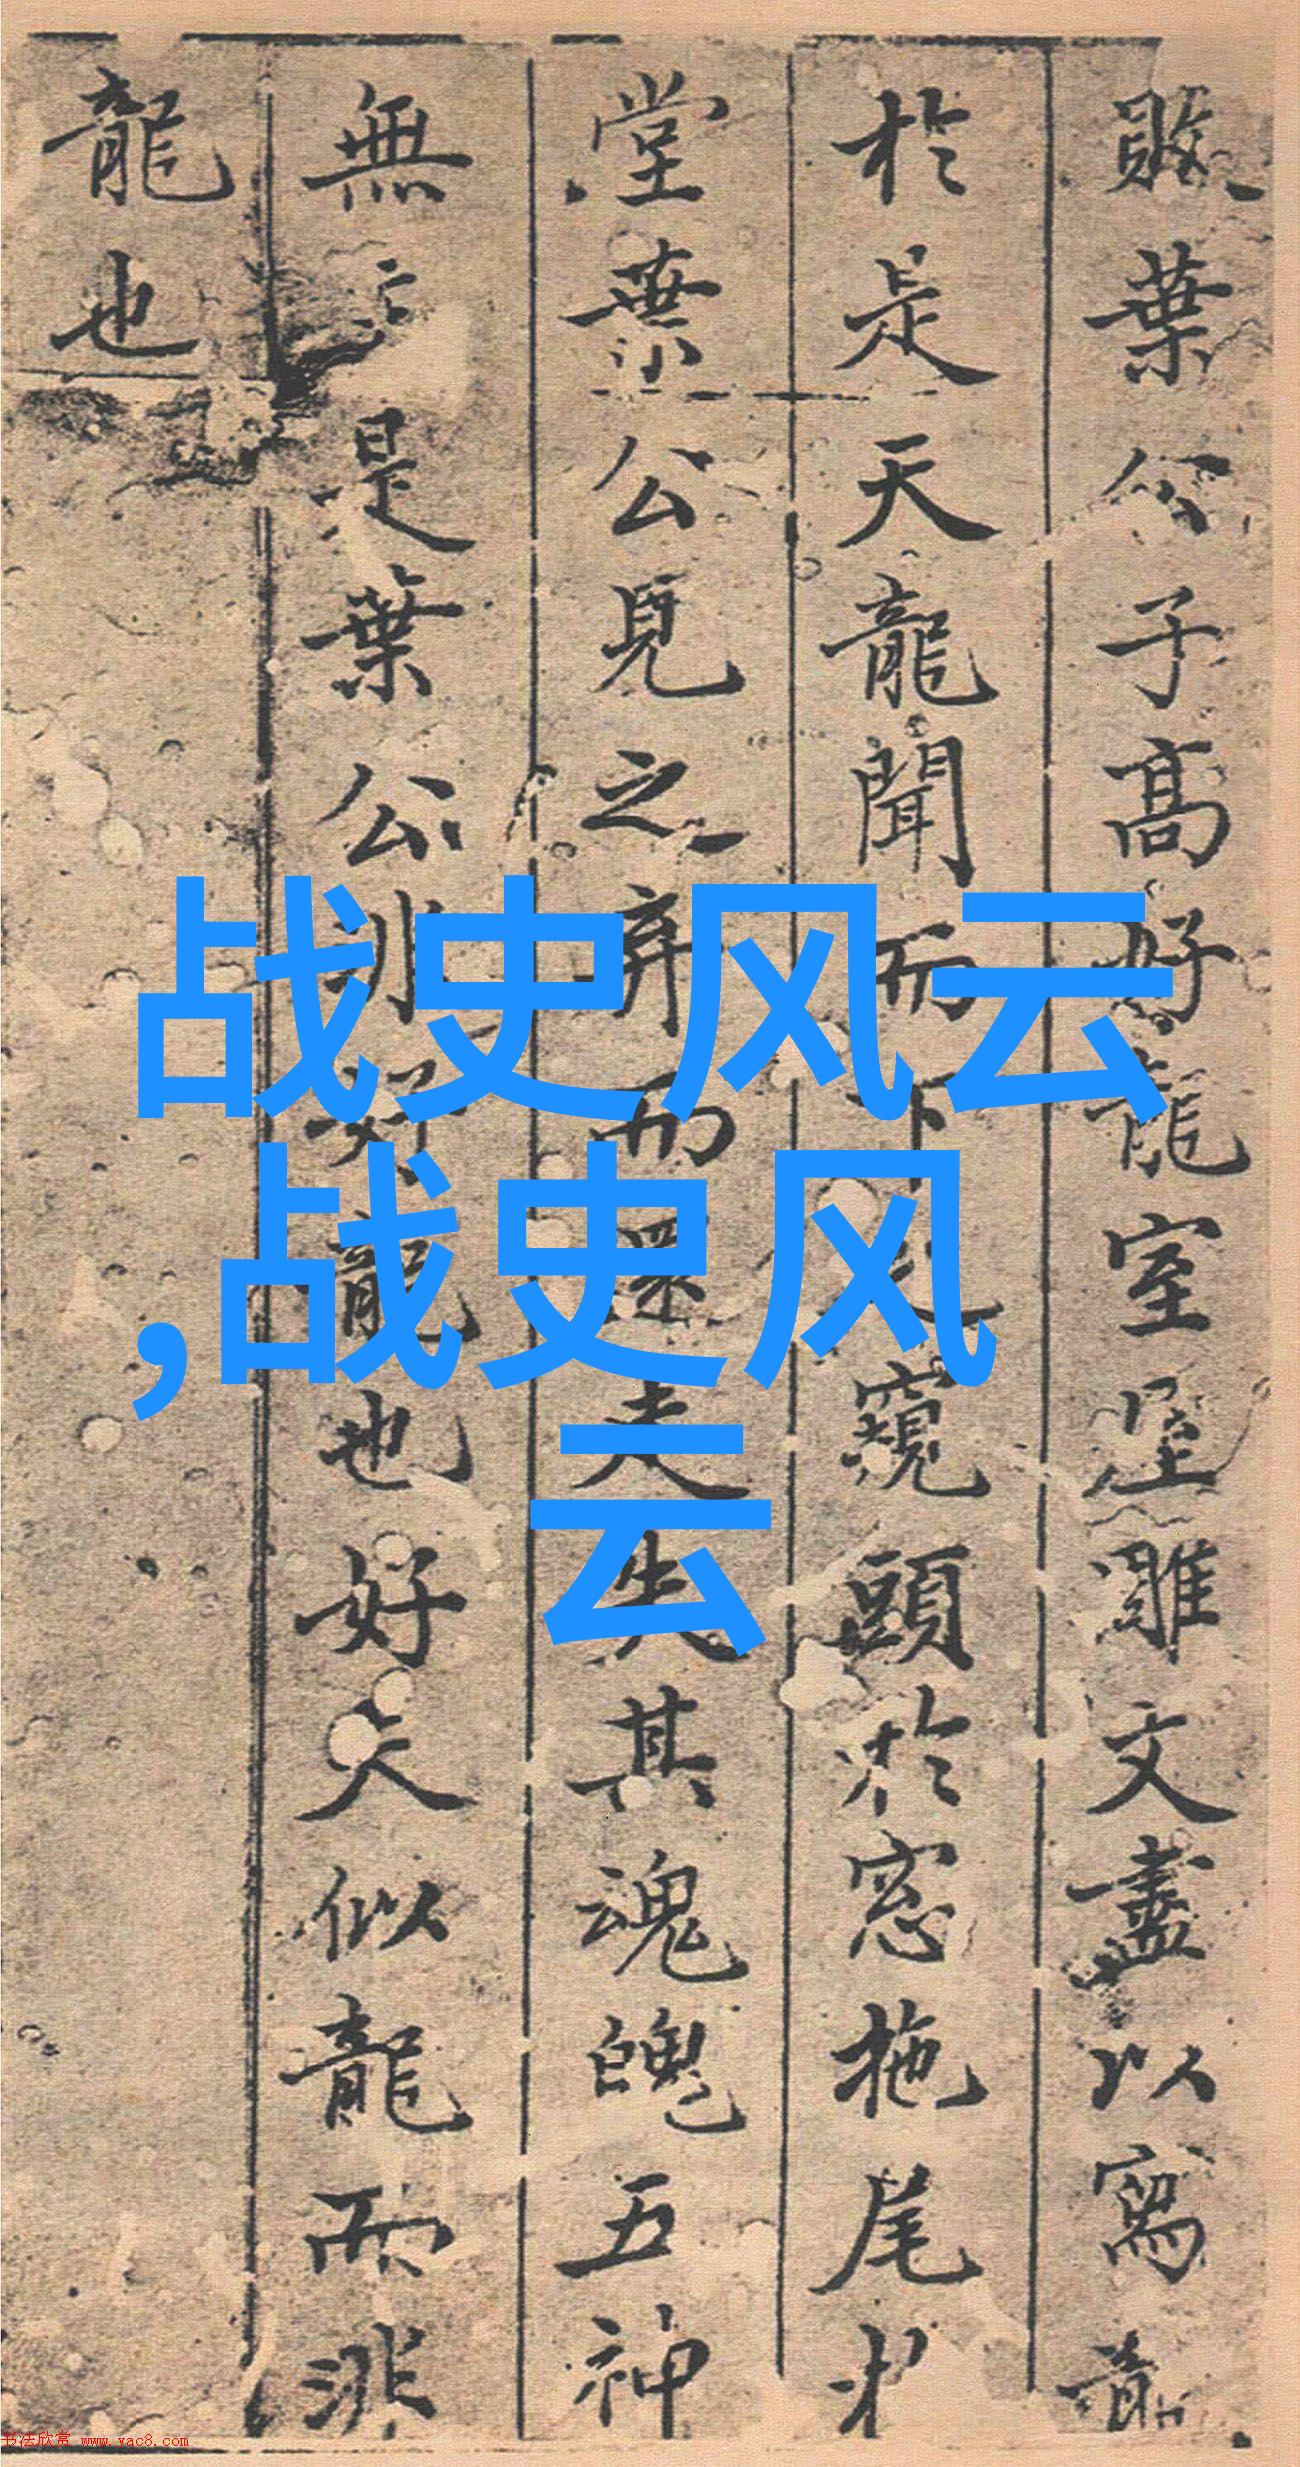 战史风云
,战史风
云
敗葉公子高好龍室屋雕文盡以寫龍
於是天龍聞而下之窺頭於窓拖尾於
堂葉公見之弃而還走失其魂魄五神
無主是葉公非好龍也好夫似龍而非
龍也
书法欣赏 www.yac8.com